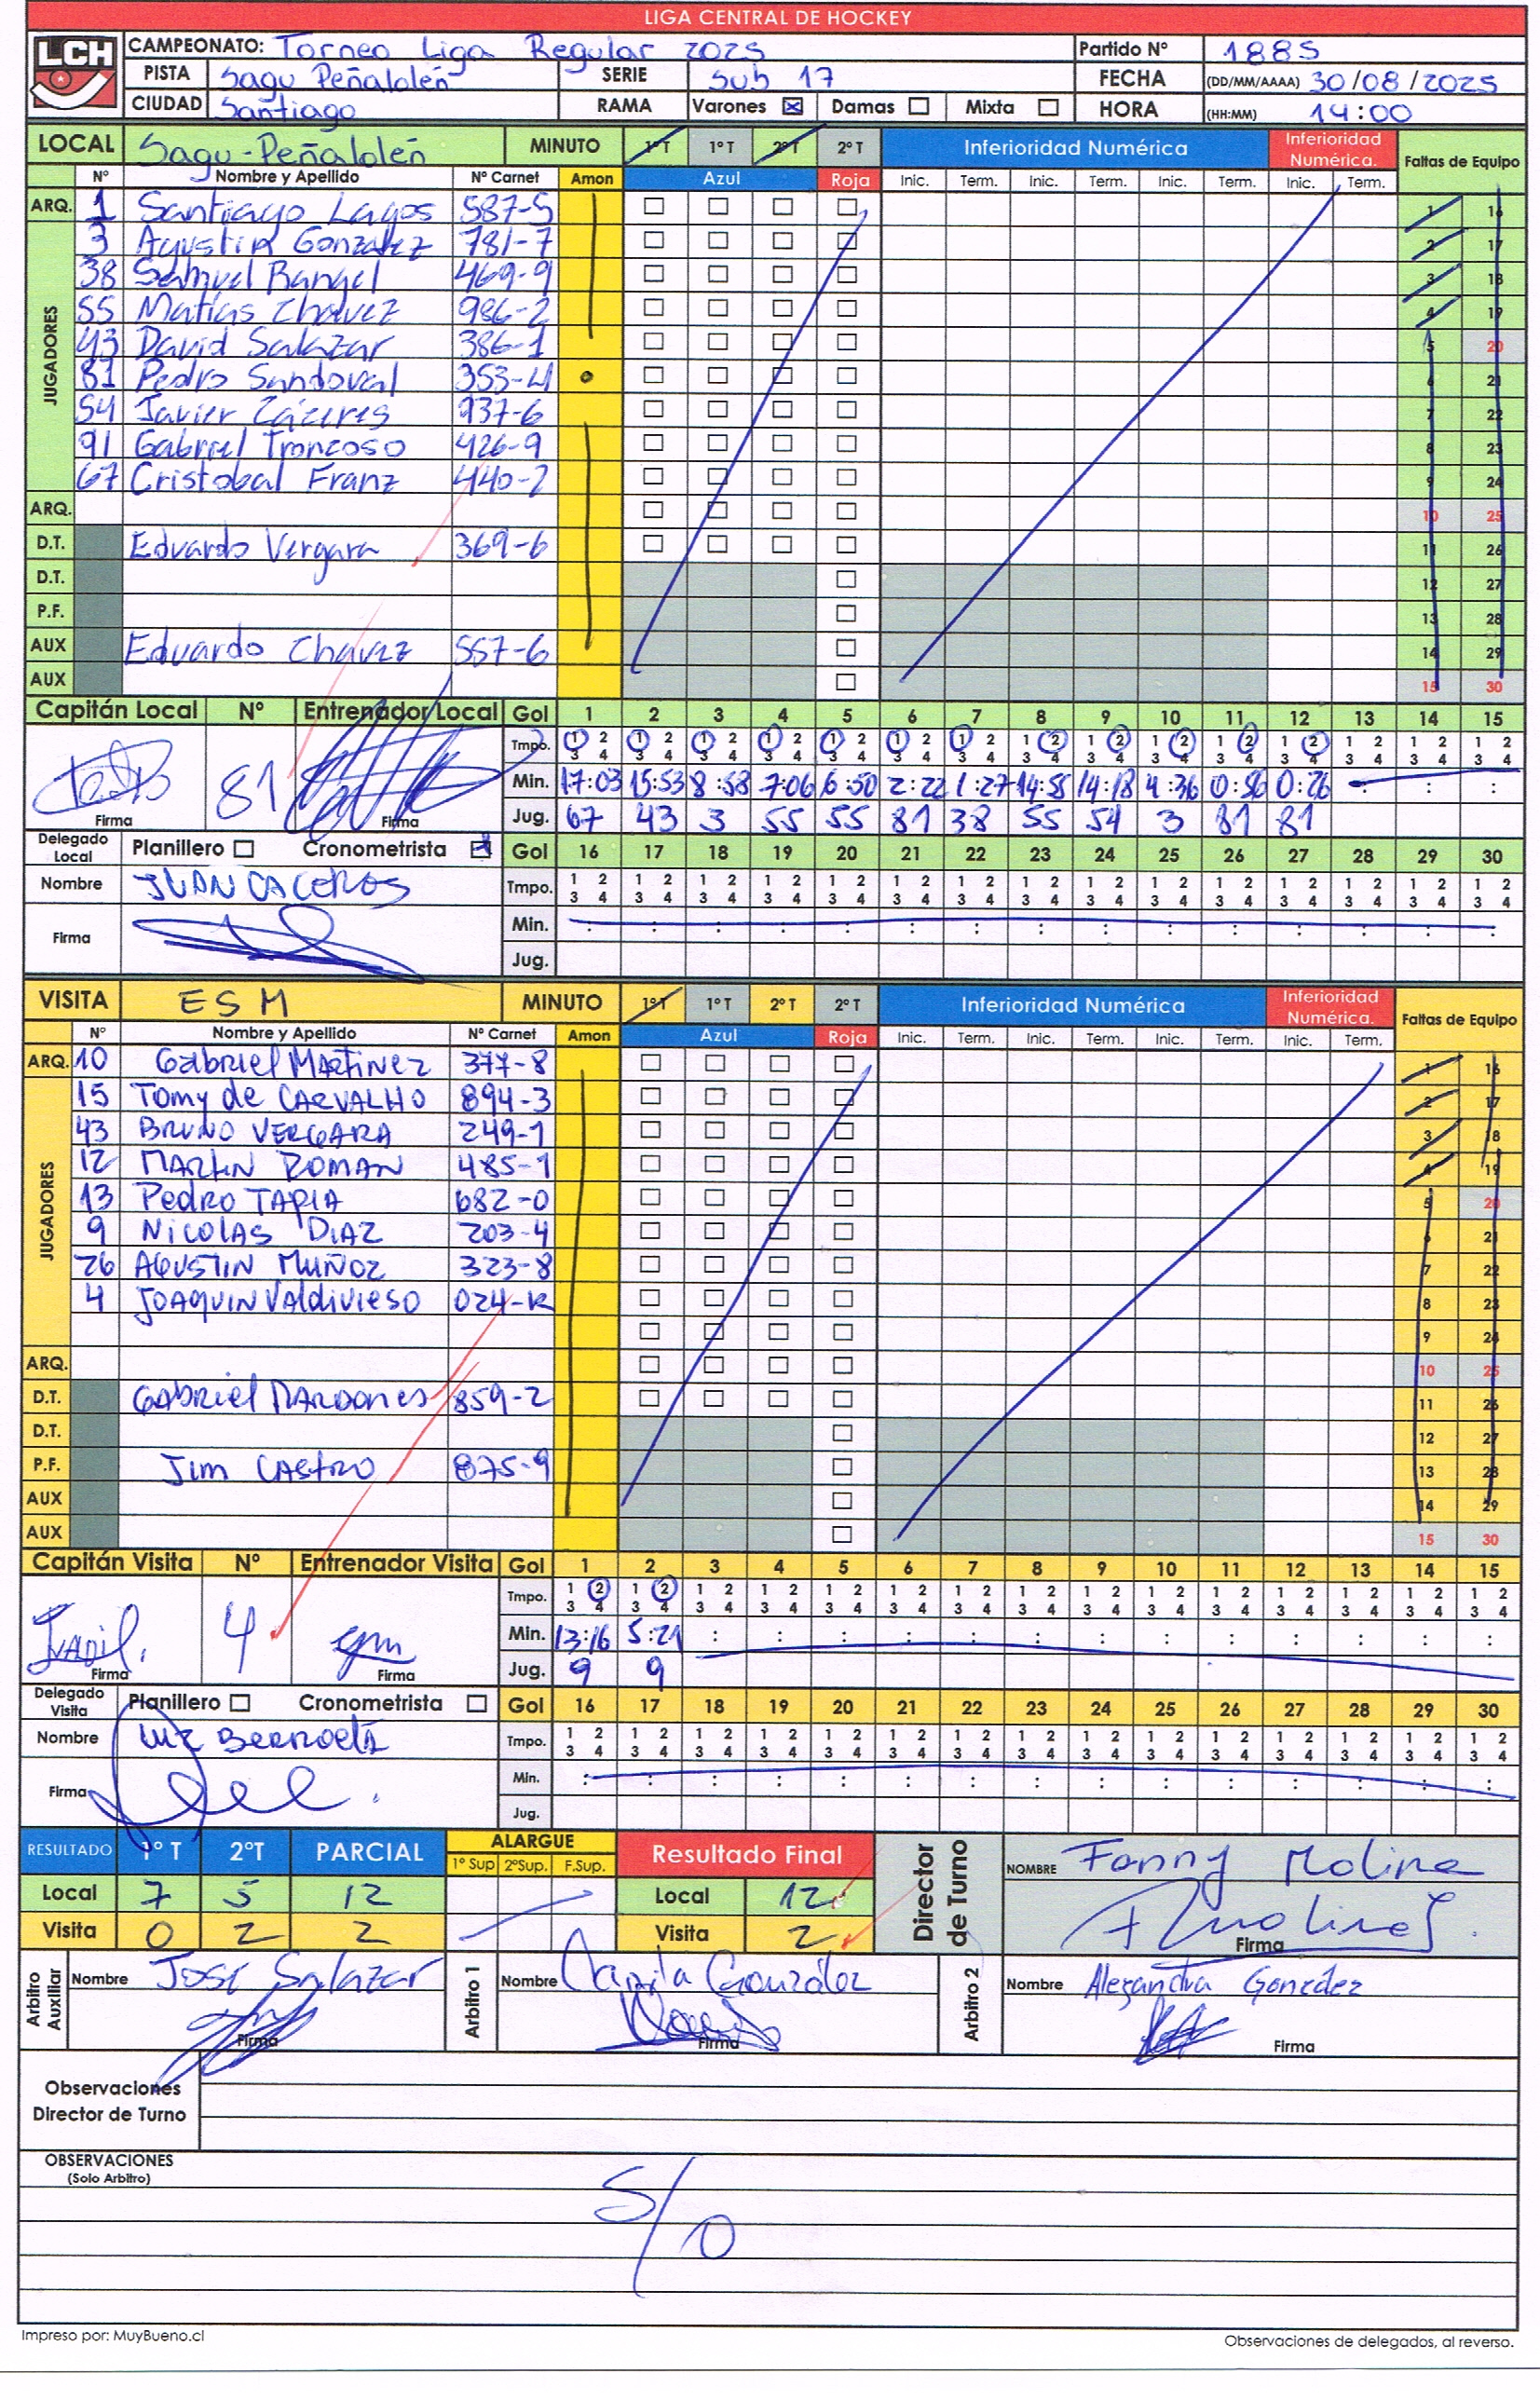 LIGA CENTRAL DE HOCKEY
LCH CAMPEONATO: Torneo Liga Regular 2025 Partido Nº 1885
PISTA Sagu Peñalolén SERIE Sub 17 FECHA (DD/MM/AAAA) 30/08/2025
CIUDAD Santiago RAMA Varones ☒ Damas ☐ Mixta ☐ HORA (HH:MM) 14:00
LOCAL Sagu-Peñalolén MINUTO 1º T 1º T 2º T 2º T Inferioridad Numérica Inferioridad Numérica. Faltas de Equipo
Nº Nombre y Apellido Nº Carnet Amon Azul Roja Inic. Term. Inic. Term. Inic. Term. Inic. Term.
ARQ. 1 Santiago Lagos 587-5 1 16
JUGADORES
3 Agustin Gonzalez 781-7 2 17
38 Samuel Rangel 469-9 3 18
55 Matías Chavez 986-2 4 19
43 David Salazar 386-1 5 20
81 Pedro Sandoval 353-4 6 21
54 Javier Cáceres 737-6 7 22
91 Gabriel Troncoso 426-9 8 23
67 Cristobal Franz 440-2 9 24
ARQ. 10 25
D.T. Eduardo Vergara 369-6 11 26
D.T. 12 27
P.F. 13 28
AUX Eduardo Chavez 557-6 14 29
AUX 15 30
Capitán Local Nº Entrenador Local Gol 1 2 3 4 5 6 7 8 9 10 11 12 13 14 15
Tmpo. 1 2 1 2 1 2 1 2 1 2 1 2 1 2 1 2 1 2 1 2 1 2 1 2 1 2 1 2 1 2
3 4 3 4 3 4 3 4 3 4 3 4 3 4 3 4 3 4 3 4 3 4 3 4 3 4 3 4 3 4
81 Min. 17:03 15:53 8:58 7:06 6:50 2:22 1:27 14:55 14:18 4:36 0:56 0:26 : : :
Firma Firma Jug. 67 43 3 55 55 81 38 55 54 3 81 81
Delegado Local Planillero ☐ Cronometrista ☒ Gol 16 17 18 19 20 21 22 23 24 25 26 27 28 29 30
Nombre JUAN CACEROS Tmpo. 1 2 1 2 1 2 1 2 1 2 1 2 1 2 1 2 1 2 1 2 1 2 1 2 1 2 1 2 1 2
3 4 3 4 3 4 3 4 3 4 3 4 3 4 3 4 3 4 3 4 3 4 3 4 3 4 3 4 3 4
Firma Min. : : : : : : : : : : : : : : :
Jug.
VISITA ESM MINUTO 1º T 1º T 2º T 2º T Inferioridad Numérica Inferioridad Numérica. Faltas de Equipo
Nº Nombre y Apellido Nº Carnet Amon Azul Roja Inic. Term. Inic. Term. Inic. Term. Inic. Term.
ARQ. 10 Gabriel Martinez 377-8 1 16
JUGADORES
15 Tomy de CARVALHO 894-3 2 17
43 BRUNO VERGARA 249-1 3 18
12 MARTIN ROMAN 485-1 4 19
13 Pedro TAPIA 682-0 5 20
9 NICOLAS DIAZ 203-4 6 21
26 AGUSTIN MUÑOZ 323-8 7 22
4 JOAQUIN Valdivieso 024-K 8 23
9 24
ARQ. 10 25
D.T. GABRIEL MARDONES 859-2 11 26
D.T. 12 27
P.F. Jim CASTRO 875-9 13 28
AUX 14 29
AUX 15 30
Capitán Visita Nº Entrenador Visita Gol 1 2 3 4 5 6 7 8 9 10 11 12 13 14 15
Tmpo. 1 2 1 2 1 2 1 2 1 2 1 2 1 2 1 2 1 2 1 2 1 2 1 2 1 2 1 2 1 2
3 4 3 4 3 4 3 4 3 4 3 4 3 4 3 4 3 4 3 4 3 4 3 4 3 4 3 4 3 4
4 Min. 13:16 5:21 : : : : : : : : : : : : :
Firma Firma Jug. 9 9
Delegado Visita Planillero ☐ Cronometrista ☐ Gol 16 17 18 19 20 21 22 23 24 25 26 27 28 29 30
Nombre Tmpo. 1 2 1 2 1 2 1 2 1 2 1 2 1 2 1 2 1 2 1 2 1 2 1 2 1 2 1 2 1 2
3 4 3 4 3 4 3 4 3 4 3 4 3 4 3 4 3 4 3 4 3 4 3 4 3 4 3 4 3 4
Firma Min. : : : : : : : : : : : : : : :
Jug.
RESULTADO 1º T 2ºT PARCIAL ALARGUE 1º Sup 2ºSup. F.Sup. Resultado Final Director de Turno NOMBRE Fanny Molina
Local 7 5 12 Local 12
Visita 0 2 2 Visita 2 Firma
Arbitro Auxiliar Nombre José Salazar Arbitro 1 Nombre Camila González Arbitro 2 Nombre Alexandra González
Firma Firma Firma
Observaciones
Director de Turno
OBSERVACIONES
(Solo Arbitro)
S/O
Impreso por: MuyBueno.cl Observaciones de delegados, al reverso.